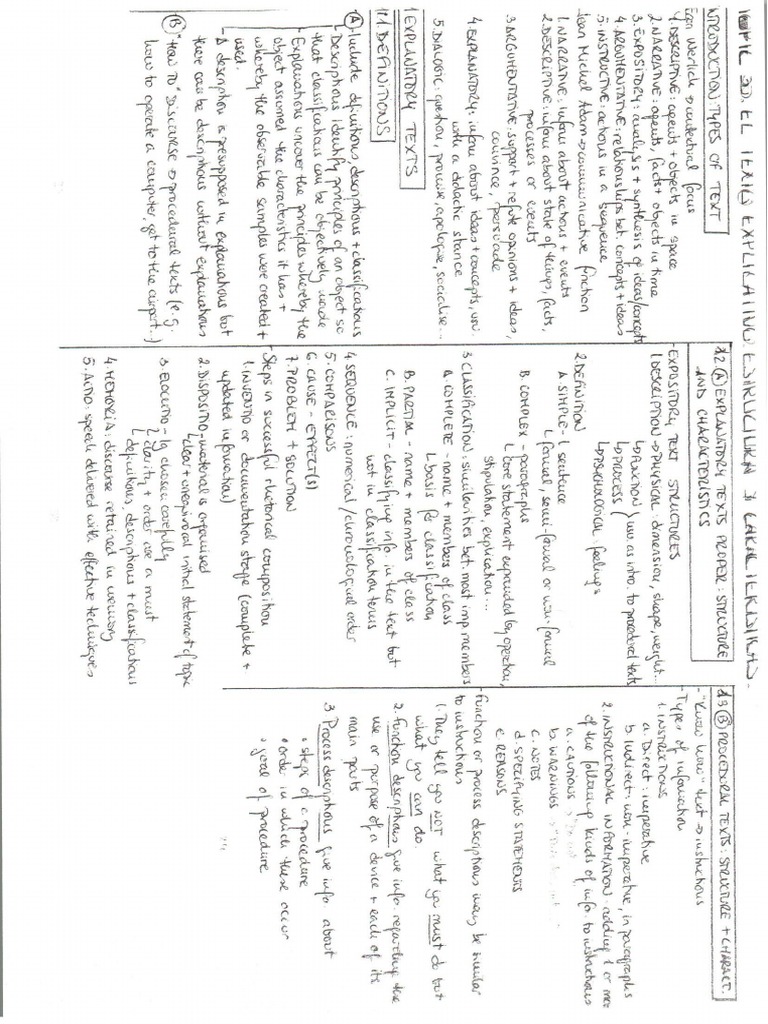 TOPIC 30. EL TEXTO EXPLICATIVO. ESTRUCTURA Y CARACTERÍSTICAS.
INTRODUCTION: TYPES OF TEXT
Egon Werlich → contextual focus
1. DESCRIPTIVE: agents + objects in space
2. NARRATIVE: agents, facts + objects in time
3. EXPOSITORY: analysis + synthesis of ideas/concepts
4. ARGUMENTATIVE: relationships bet. concepts + ideas
5. INSTRUCTIVE: actions in a sequence
Jean Michel Adam → communicative function
1. NARRATIVE: inform about actions + events
2. DESCRIPTIVE: inform about state of things, facts,
processes or events
3. ARGUMENTATIVE: support + refute opinions + ideas,
convince, persuade
4. EXPLANATORY: inform about ideas + concepts, usu.
with a didactic stance
5. DIALOGIC: question, promise, apologise, socialise...
1. EXPLANATORY TEXTS
1.1. DEFINITIONS
(A) - Include definitions, descriptions + classifications
- Descriptions identify principles of an object so
that classifications can be objectively made
- Explanations uncover the principles whereby the
object assumed the characteristics it has +
whereby the observable samples were created +
used.
- A description is presupposed in explanations but
there can be descriptions without explanations
(B) - "HOW TO" DISCOURSE → procedural texts (e.g.
how to operate a computer, get to the airport...)
1.2 (A) EXPLANATORY TEXTS PROPER: STRUCTURE
AND CHARACTERISTICS
- EXPOSITORY TEXT STRUCTURES
1. DESCRIPTION → PHYSICAL: dimension, shape, weight...
↳ FUNCTION } use as intro. to procedural texts
↳ PROCESS
↳ PSYCHOLOGICAL: feelings
2. DEFINITION
A. SIMPLE - 1 sentence
↳ formal, semi-formal or non-formal
B. COMPLEX - paragraphs
↳ core statement expanded by operation,
stipulation, explication...
3. CLASSIFICATION: similarities bet. most imp. members
A. COMPLETE - name + members of class
↳ basis for classification
B. PARTIAL - name + members of class
C. IMPLICIT - classifying info. in the text but
not in classification terms
4. SEQUENCE: numerical / chronological order
5. COMPARISONS
6. CAUSE - EFFECT(S)
7. PROBLEM + SOLUTION
- Steps in successful rhetorical composition
1. INVENTIO or documentation stage (complete +
updated information)
2. DISPOSITIO - material is organised
↳ clear + unequivocal initial statement of topic
3. ELOCUTIO - lg chosen carefully
↳ clarity + order are a must
↳ definitions, descriptions + classifications
4. MEMORIA: discourse retained in memory
5. ACTIO: speech delivered with effective techniques
1.3 (B) PROCEDURAL TEXTS: STRUCTURE + CHARACT.
- "Know how" text → instructions
- Types of information
1. INSTRUCTIONS
a. Direct: imperative
b. Indirect: non-imperative, in paragraphs
2. INSTRUCTIONAL INFORMATION: adding 1 or more
of the following kinds of info. to instructions
a. CAUTIONS
b. WARNINGS
c. NOTES
d. SPECIFYING STATEMENTS
e. REASONS
- Function or process descriptions may be similar
to instructions
1. They tell you NOT what you must do but
what you can do.
2. Function descriptions give info. regarding the
use or purpose of a device + each of its
main parts
3. Process descriptions give info. about
• steps of a procedure
• order in which these occur
• goal of procedure